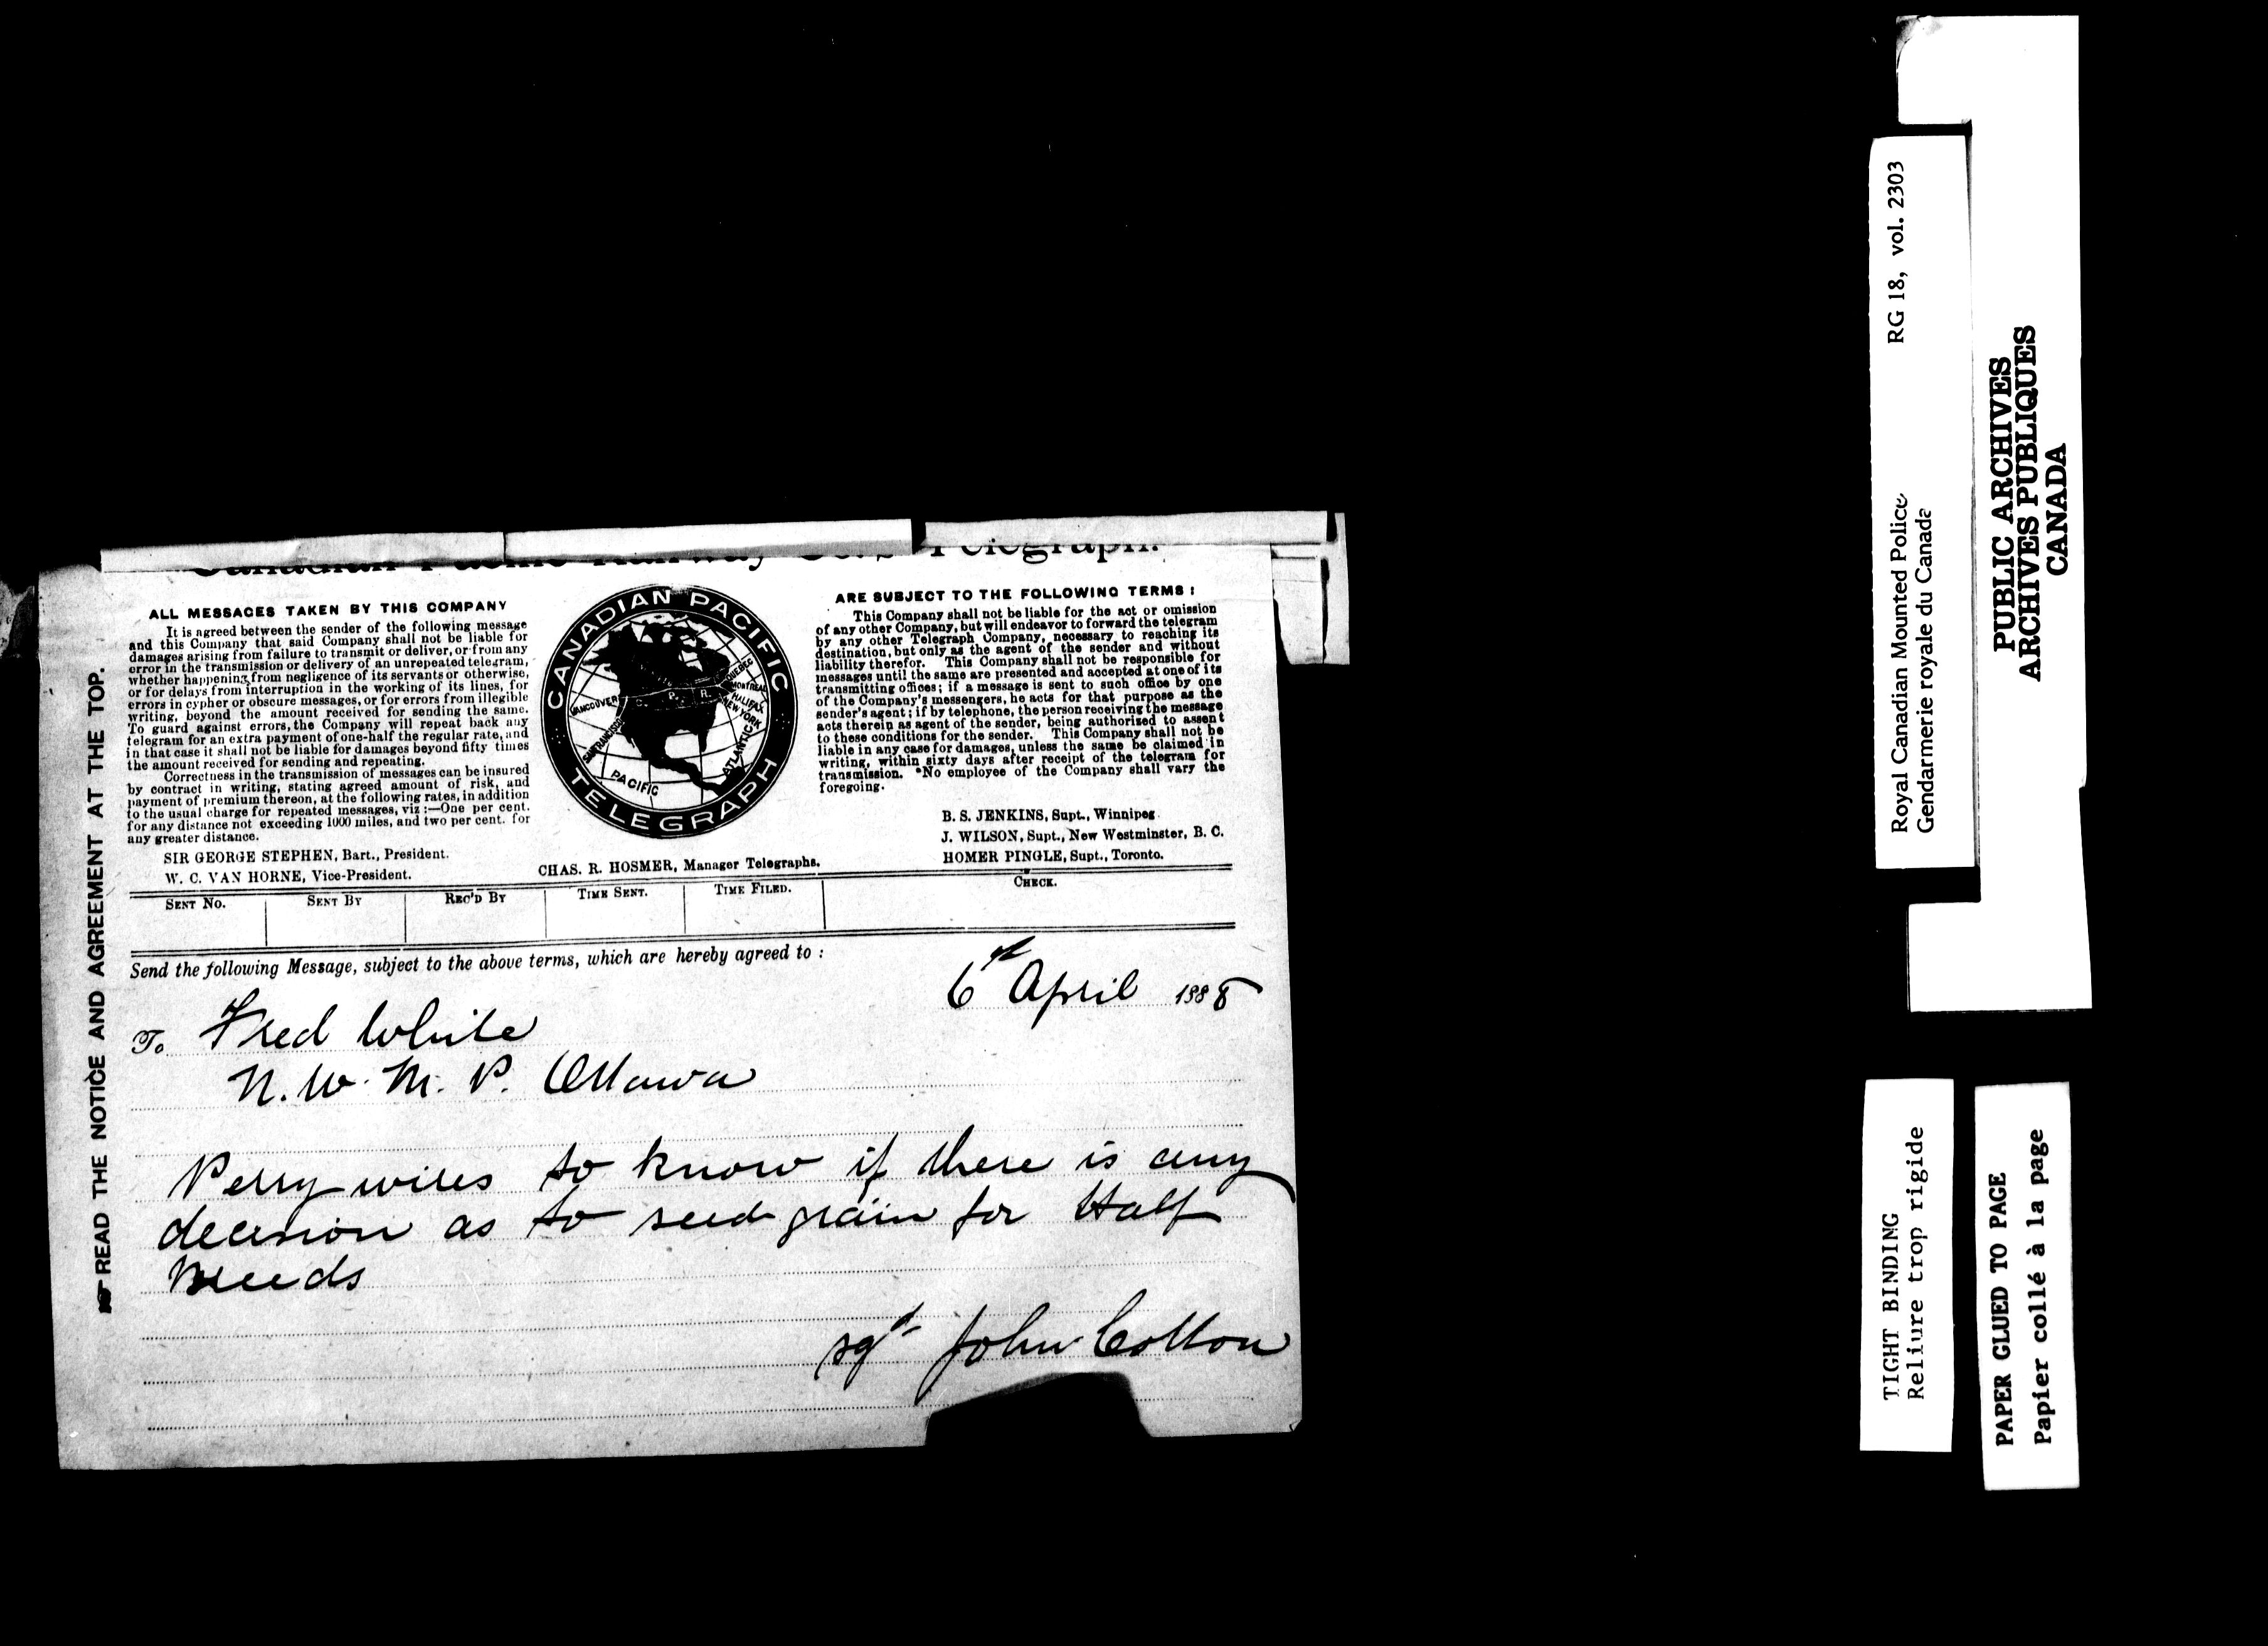 Canadian Pacific Railway Co.'s Telegraph.
ALL MESSAGES TAKEN BY THIS COMPANY
It is agreed between the sender of the following message
and this Company that said Company shall not be liable for
damages arising from failure to transmit or deliver, or from any
error in the transmission or delivery of an unrepeated telegram,
whether happening from negligence of its servants or otherwise,
or for delays from interruption in the working of its lines, for
errors in cypher or obscure messages, or for errors from illegible
writing, beyond the amount received for sending the same.
To guard against errors, the Company will repeat back any
telegram for an extra payment of one-half the regular rate, and
in that case it shall not be liable for damages beyond fifty times
the amount received for sending and repeating.
Correctness in the transmission of messages can be insured
by contract in writing, stating agreed amount of risk, and
payment of premium thereon, at the following rates, in addition
to the usual charge for repeated messages, viz :—One per cent.
for any distance not exceeding 1000 miles, and two per cent. for
any greater distance.
SIR GEORGE STEPHEN, Bart., President.
W. C. VAN HORNE, Vice-President.
CANADIAN PACIFIC
TELEGRAPH
VANCOUVER
SAN FRANCISCO
C. P. R.
QUEBEC
MONTREAL
HALIFAX
NEW YORK
ATLANTIC
PACIFIC
CHAS. R. HOSMER, Manager Telegraphs.
ARE SUBJECT TO THE FOLLOWING TERMS :
This Company shall not be liable for the act or omission
of any other Company, but will endeavor to forward the telegram
by any other Telegraph Company, necessary to reaching its
destination, but only as the agent of the sender and without
liability therefor. This Company shall not be responsible for
messages until the same are presented and accepted at one of its
transmitting offices; if a message is sent to such office by one
of the Company's messengers, he acts for that purpose as the
sender's agent; if by telephone, the person receiving the message
acts therein as agent of the sender, being authorized to assent
to these conditions for the sender. This Company shall not be
liable in any case for damages, unless the same be claimed in
writing, within sixty days after receipt of the telegram for
transmission. No employee of the Company shall vary the
foregoing.
B. S. JENKINS, Supt., Winnipeg.
J. WILSON, Supt., New Westminster, B. C.
HOMER PINGLE, Supt., Toronto.
SENT NO. SENT BY REC'D BY TIME SENT. TIME FILED. CHECK.
Send the following Message, subject to the above terms, which are hereby agreed to :
6th April 1888
To Fred White
N. W. M. P. Ottawa
Perry wires to know if there is any
decision as to seed grain for Half
Breeds
sgd John Cotton
READ THE NOTICE AND AGREEMENT AT THE TOP.
Royal Canadian Mounted Police RG 18, vol. 2303
Gendarmerie royale du Canada
PUBLIC ARCHIVES
ARCHIVES PUBLIQUES
CANADA
TIGHT BINDING
Reliure trop rigide
PAPER GLUED TO PAGE
Papier collé à la page